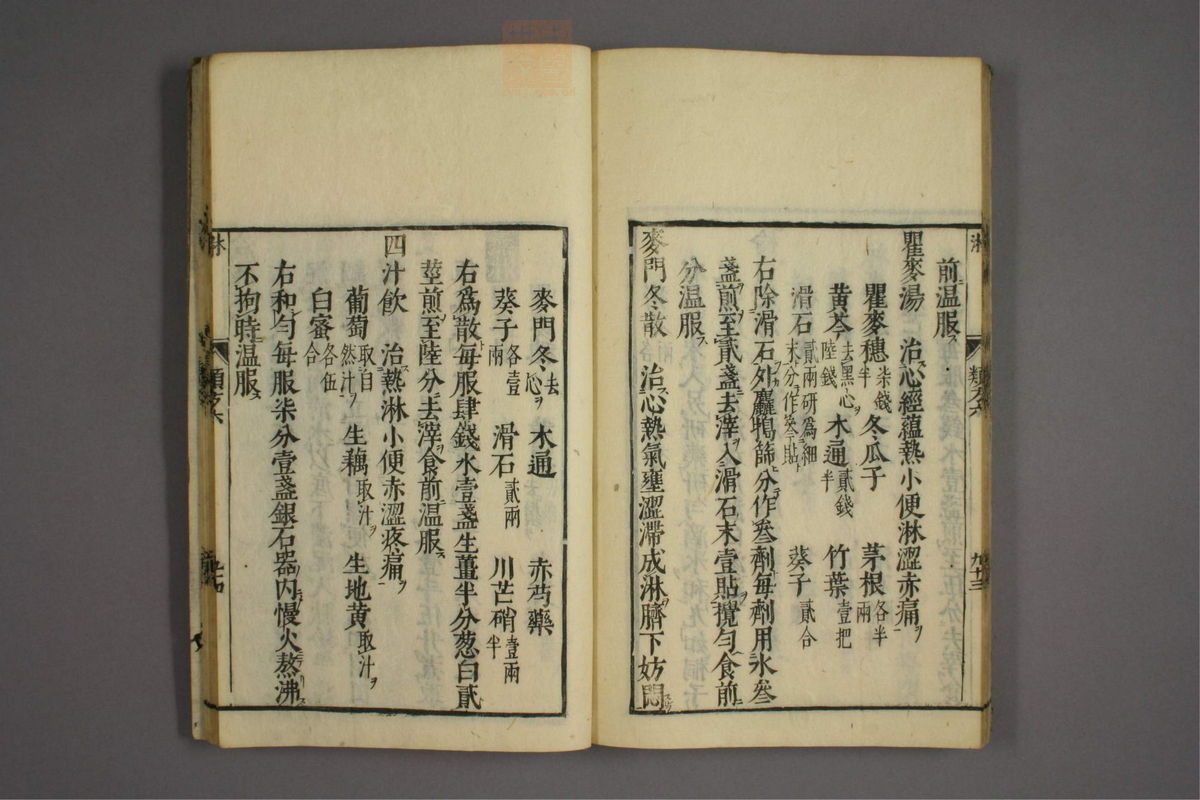 煎温服ス
瞿麥湯 治心經蘊熱小便淋澀赤痛ヲ
瞿麥穗柒錢半 冬瓜子 茅根各半兩
黄芩去黑心ヲ陸錢 木通貳錢半 竹葉壹把
滑石貳兩研爲細末分作叄貼ト 葵子貳合
右除滑石外麤鴨篩分作叄劑每劑用水叄
盞煎至貳盞去滓入滑石末壹貼攪匀食前
分温服ス
麥門冬散 治心熱氣壅澀滯成淋臍下妨悶
麥門冬去心ヲ 木通 赤芍藥
葵子各壹兩 滑石貳兩 川芒硝壹兩半
右爲散每服肆錢水壹盞生薑半分葱白貳
莖煎至陸分去滓食前温服ス
四汁飲 治熱淋小便赤澀疼痛ヲ
葡萄取自然汁ヲ 生藕取汁ヲ 生地黄取汁ヲ
白蜜各伍合
右和匀每服柒分壹盞銀石器内慢火熬沸
不拘時温服ス